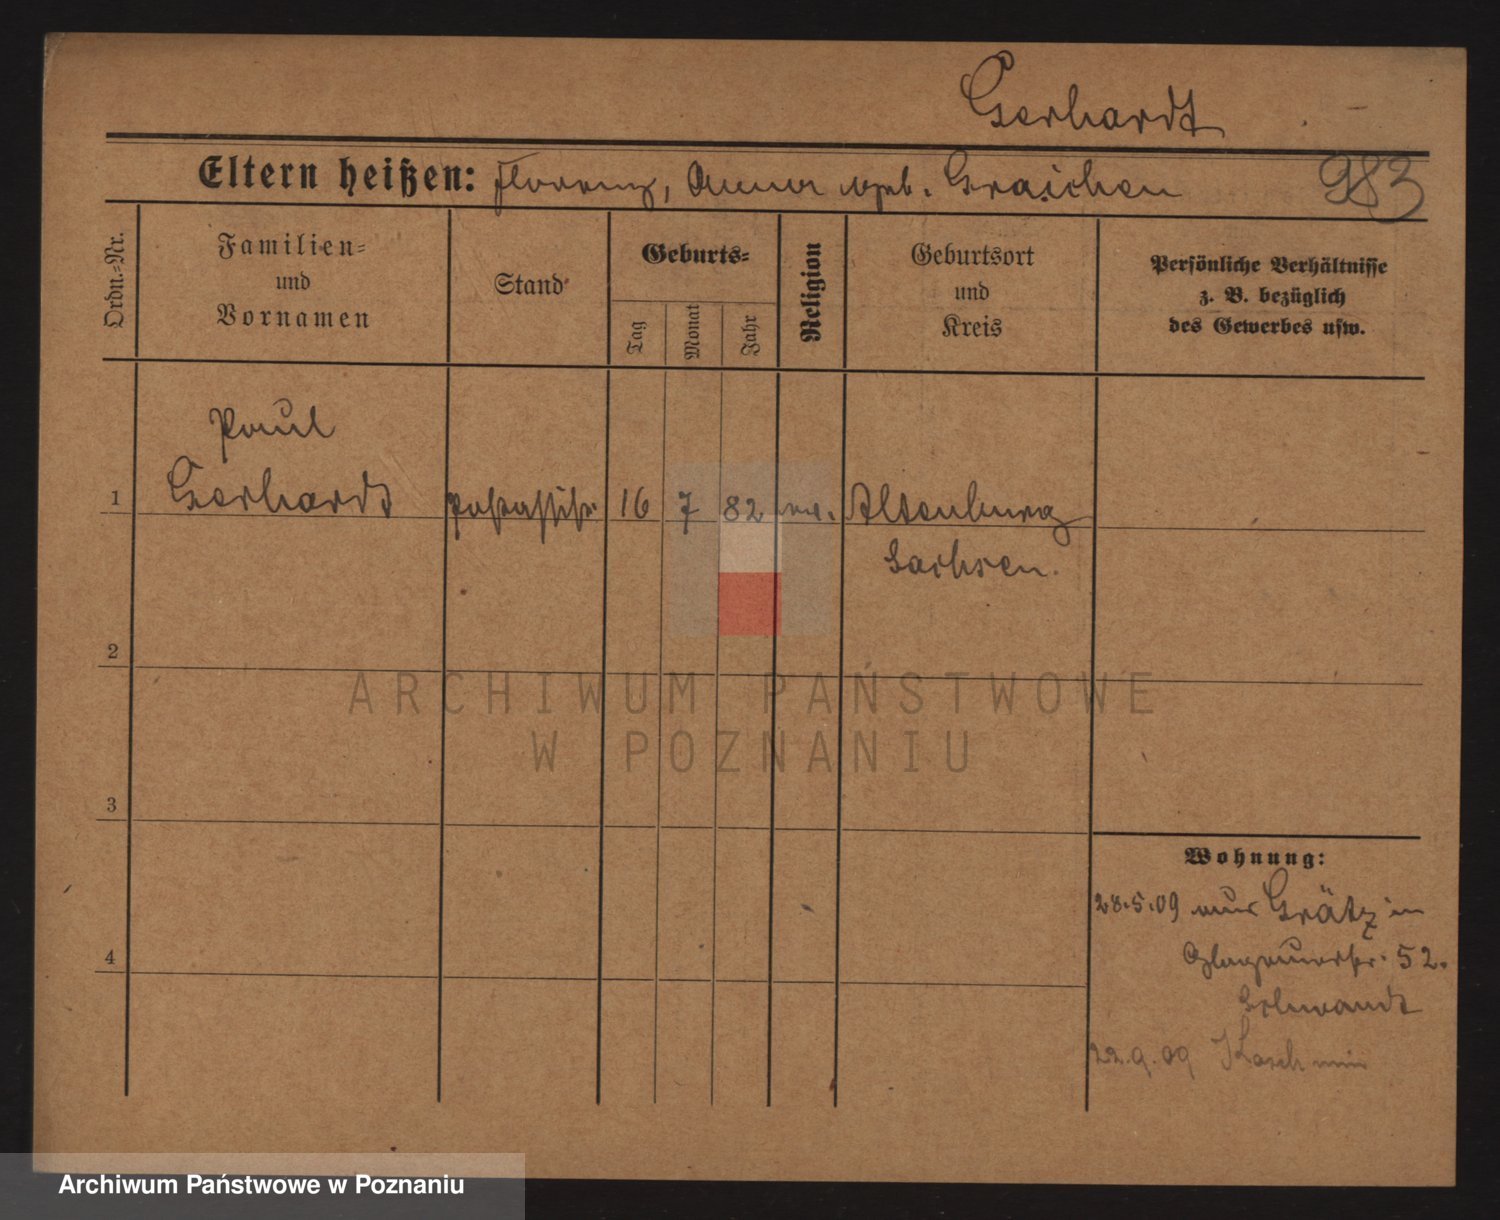 Gerhardt
Eltern heißen: Florenz, Anna geb. Graichen 983
Ordn.=Nr.
Familien=
und
Vornamen
Stand
Geburts=
Tag
Monat
Jahr
Religion
Geburtsort
und
Kreis
Persönliche Verhältnisse
z. B. bezüglich
des Gewerbes usw.
Paul
1 Gerhardt Postassist. 16 7 82 ev. Altenburg
Sachsen.
2
3
4
ARCHIWUM PAŃSTWOWE
W POZNANIU
Wohnung:
28.5.09 aus Grätz in
Glogauerstr. 52.
Schwandt
22.9.09 Koschmin
Archiwum Państwowe w Poznaniu